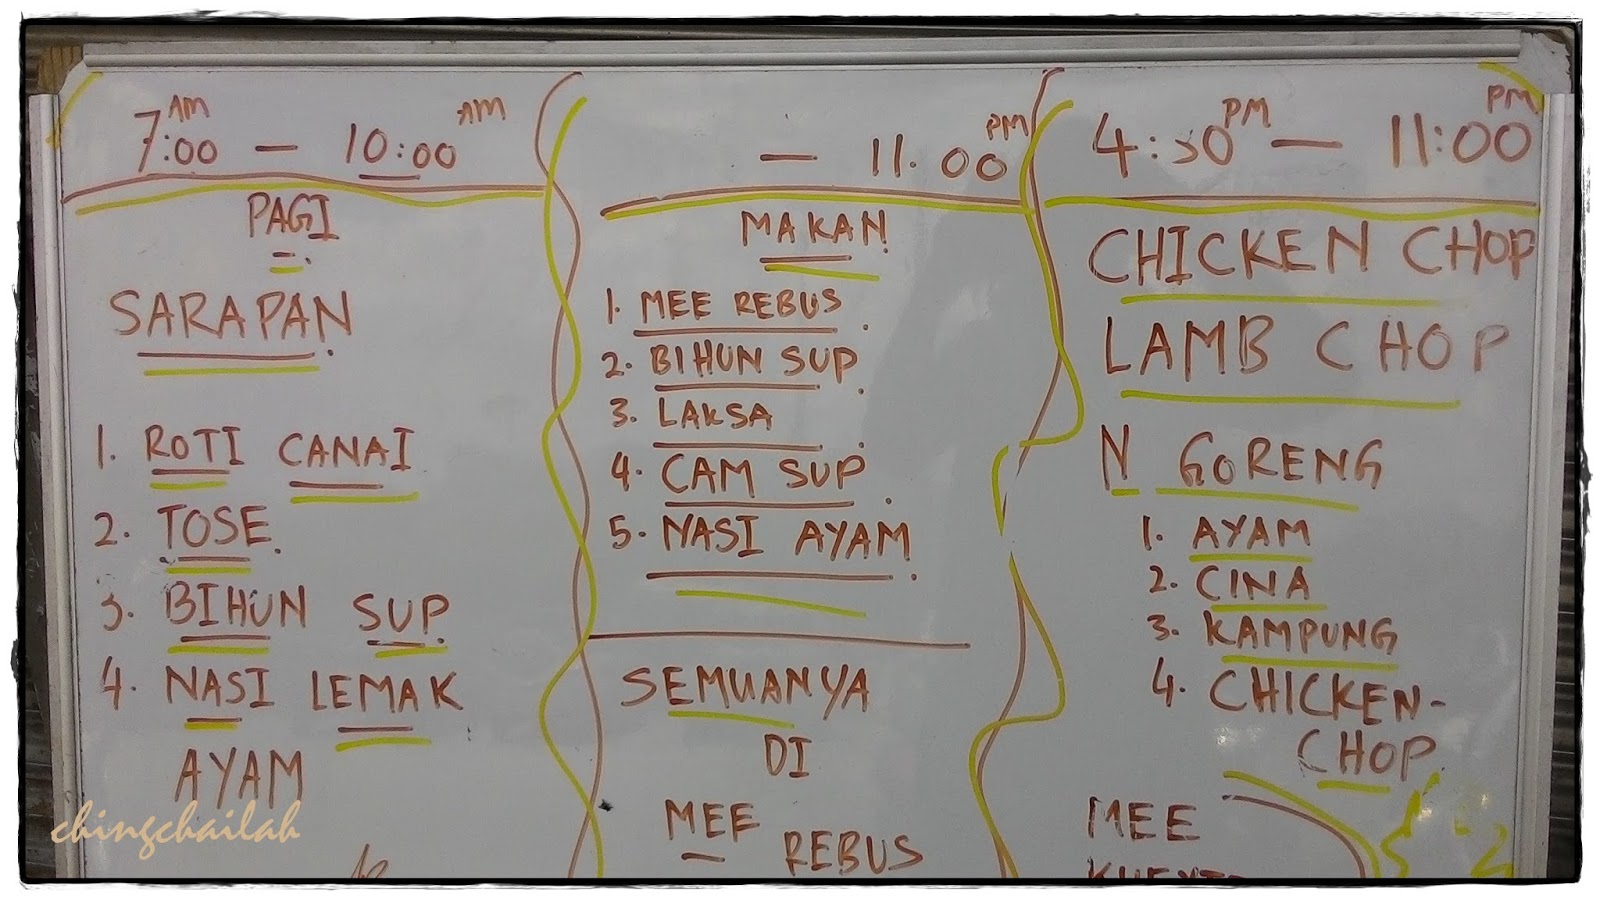 7:00 AM — 10:00 AM
PAGI
SARAPAN
1. ROTI CANAI
2. TOSE
3. BIHUN SUP
4. NASI LEMAK
AYAM
— 11.00 PM
MAKAN
1. MEE REBUS
2. BIHUN SUP
3. LAKSA
4. CAM SUP
5. NASI AYAM
SEMUANYA
DI
MEE REBUS
4:30 PM — 11:00 PM
CHICKEN CHOP
LAMB CHOP
N GORENG
1. AYAM
2. CINA
3. KAMPUNG
4. CHICKEN-
CHOP
MEE
chingchailah